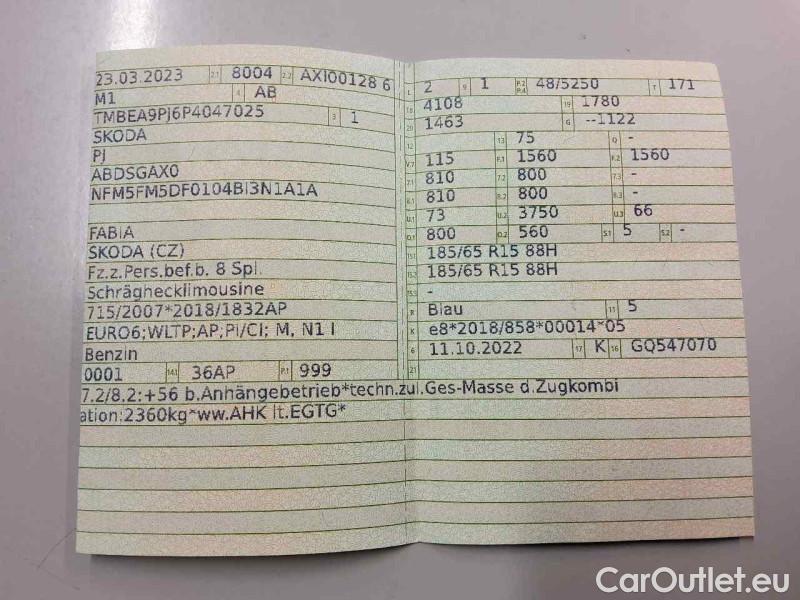 23.03.2023 2.1 8004 2.2 AXI00128 6
M1 4 AB
TMBEA9PJ6P4047025 3 1
SKODA
PJ
ABDSGAX0
NFM5FM5DF0104BI3N1A1A
FABIA
SKODA (CZ)
Fz.z.Pers.bef.b. 8 Spl.
Schräghecklimousine
715/2007*2018/1832AP
EURO6;WLTP;AP;PI/CI; M, N1 I
Benzin
0001 14.1 36AP P.1 999
L 2 9 1 P.2 P.4 48/5250 T 171
18 4108 19 1780
20 1463 G --1122
12 13 75 Q -
V.7 115 F.1 1560 F.2 1560
7.1 810 7.2 800 7.3 -
8.1 810 8.2 800 8.3 -
U.1 73 U.2 3750 U.3 66
O.1 800 O.2 560 S.1 5 S.2 -
15.1 185/65 R15 88H
15.2 185/65 R15 88H
15.3 -
R Blau 11 5
K e8*2018/858*00014*05
6 11.10.2022 17 K 16 GQ547070
21
7.2/8.2:+56 b.Anhängebetrieb*techn.zul.Ges-Masse d.Zugkombi
ation:2360kg*ww.AHK lt.EGTG*
CarOutlet.eu